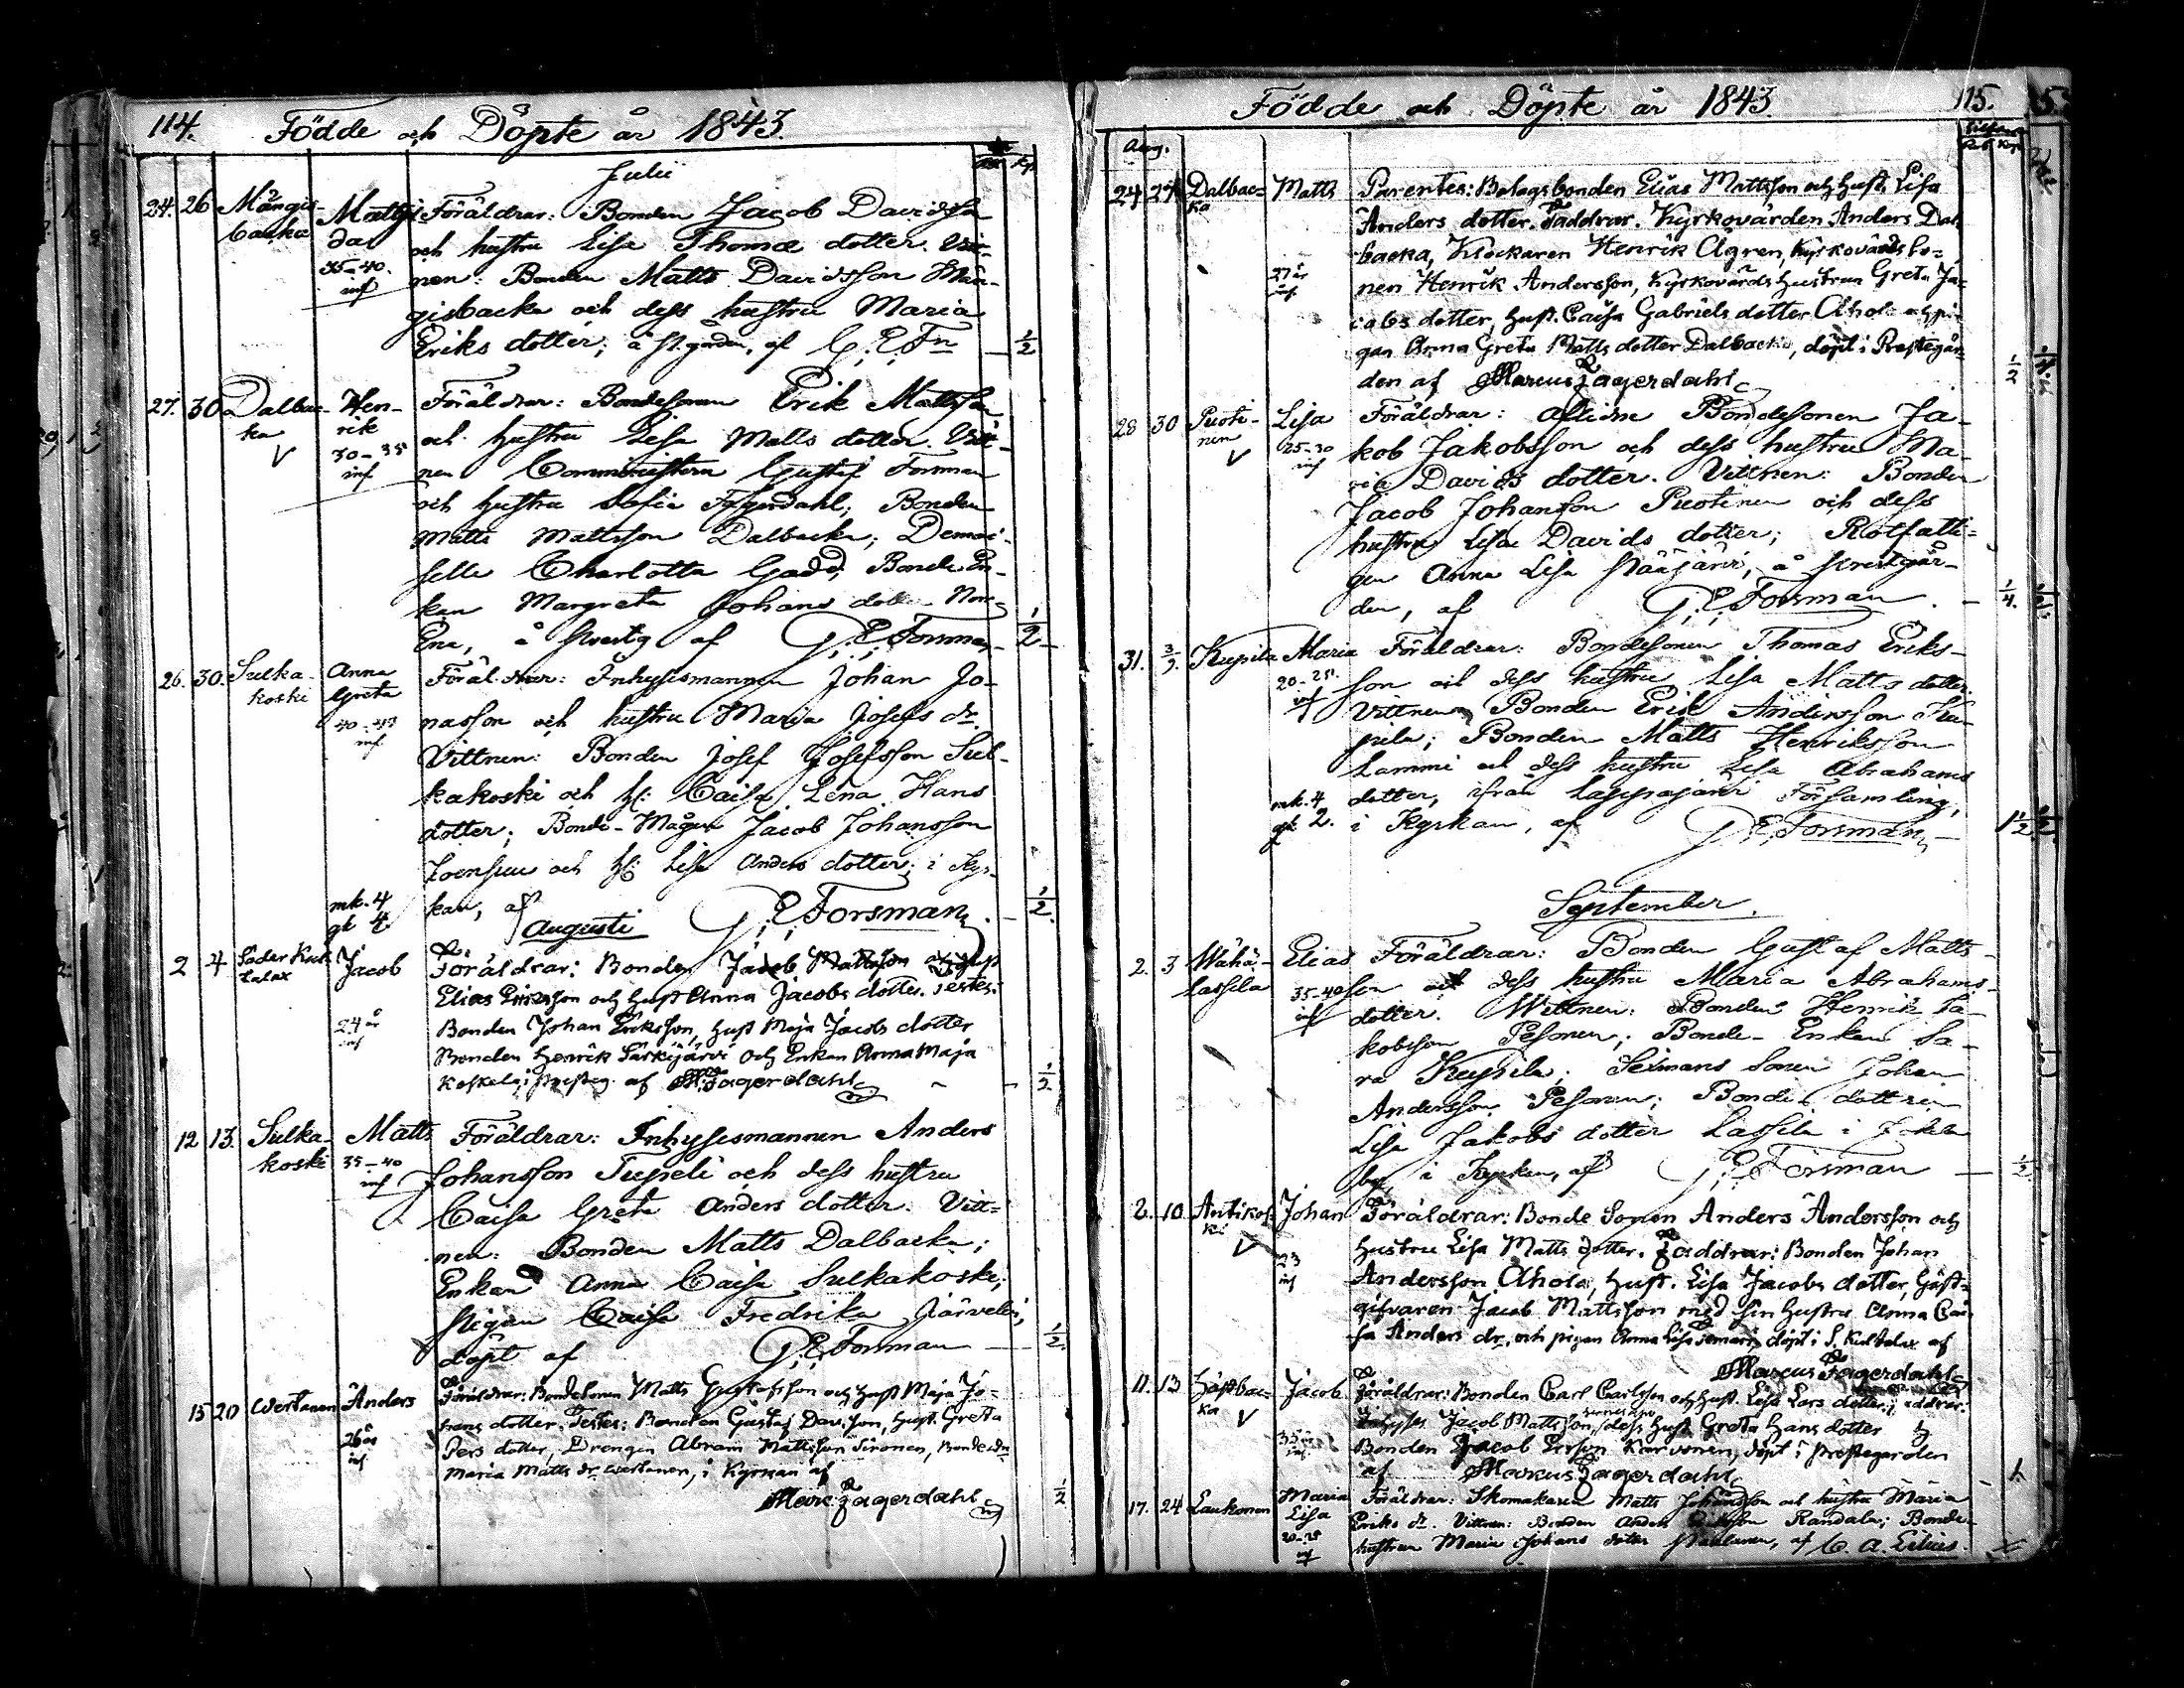 114. Födde och Döpte år 1843.
Julii
24. 26 Mångis- Föräldrar: Bonden Jacob Davidsson
backa och hustru Lisa Thomæ dotter. Vitt-
35-40. inf nen: Bonden Matts Davidsson Mån-
gisbacka och dess hustru Maria
Eriks dotter; å af G. E. Fn 1/2
27. 30 Dalbac- Hen- Föräldrar: Bondesonen Erik Mattsson
ka rik och hustru Lisa Matts dotter. Vitt-
V 30-35 inf nen Commministern Gustaf Forsman
och hustru Sofia Fagerdahl; Bonden
Matts Mattsson Dalbacka; Demoi-
selle Charlotta Gadd; Bonde En-
kan Margreta Johans dotter
å af G. E. Forsman 1/2
26. 30. Sulka- Anna Föräldrar: Inhysesmannen Johan Jo-
koski Greta nasson och hustru Maria Josefs dr.
40-43 inf Vittnen: Bonden Josef Josefsson Sul-
kakoski och h: Caisa Lena Hans
dotter; Bonde-Mågen Jacob Johansson
Joensuu och h: Lisa Anders dotter; i Kyr-
mk. 4 gk 4. kan, af G. E. Forsman. 1/2.
Augusti
2 4 Söder Kul- Jacob Föräldrar: Bonden Jacob Mattsson
talax Elias Ericsson och Hust Anna Jacobs dotter. Testes:
24 år inf Bonden Johan Eriksson, Hust Maja Jacobs dotter
Bonden Henrik Särkijärvi och Enkan Anna Maja
Koskela, i af M. Fagerdahl 1/2
12 13. Sulka- Matts Föräldrar: Inhysesmannen Anders
koski 35-40 inf Johansson Tuppeli och dess hustru
Caisa Greta Anders dotter. Vitt-
nen: Bonden Matts Dalbacka;
Enkan Anna Caisa Sulkakoski;
Pigan Caisa Fredrika Järvelä;
döpt af G. E. Forsman 1/2.
15 20 Wertanen Anders Föräldrar: Bondesonen Matts Gustafsson och Hust Maja Jo-
hans dotter. Testes: Bonden Gustaf Davidson, Hust. Greta
26 år inf Pers dotter, Drengen Abram Mattsson Sironen, Bonde
Maria Matts dr. Wertanen, i Kyrkan af
Marc: Fagerdahl 1/2
Födde och Döpte år 1843. 115.
Aug.
24 27 Dalbac- Matts Parentes: Bolagsbonden Elias Mattsson och Hust. Lisa
ka Anders dotter. Faddrar. Kyrkovärden Anders Dal
backa, Klockaren Henrik Ågren, Kyrkovärds so-
27 år inf nen Henrik Andersson, Kyrkovärds Hustrun Greta Ja-
cobs dotter, Hust. Caisa Gabriels dotter Ahola och pi-
gan Anna Greta Matts dotter Dalbacka, döpt i Prestegår-
den af Marcus Fagerdahl 1/2
28 30 Puoti- Lisa Föräldrar: Bondesonen Ja-
nen V 25-30 inf kob Jakobsson och dess hustru Ma-
ria Davids dotter. Vittnen: Bonden
Jacob Johansson Puotinen och dess
hustru Lisa Davids dotter; Rotfatti-
gen Anna Lisa Pääjärvi, å Prestgår-
den, af G. E. Forsman. 1/4.
31. 3/9. Kupila Maria Föräldrar: Bondesonen Thomas Eriks-
20-25. inf son och dess hustru Lisa Matts dotter.
Vittnen Bonden Erik Andersson Ku-
pila; Bonden Matts Henriksson
Lammi och dess hustru Lisa Abrahams
mk. 4 dotter, ifrån Lappajärvi Församling,
gk 2. i Kyrkan, af G. E. Forsman 1 1/2
September.
2. 3 Wähä- Elias Föräldrar: Bonden Gustaf Matts-
lassila 35-40 inf son och dess hustru Maria Abrahams-
dotter. Wittnen: Bonden Henrik Ja-
kobsson Pesonen; Bonde-Enkan Sa-
ra Kupila; Sexmans Sonen Johan
Andersson Pesonen; Bonde dottren
Lisa Jakobs dotter Lassila i
by, i Kyrkan, af G. E. Forsman 1/2
2. 10 Antikos- Johan Föräldrar: Bonde Sonen Anders Andersson och
ki V Hustru Lisa Matts dotter. Faddrar: Bonden Johan
23 inf Andersson Ahola, Hust. Lisa Jacobs dotter, Gäst-
gifvaren Jacob Mattsson med sin Hustru Anna Cai-
sa Anders dr. och pigan Anna Lisa döpt i S. Kultalax af
Marcus Fagerdahl
11. 13 Hästbac- Jacob Föräldrar: Bonden Carl Carlsson och Hust. Lisa Lars dotter;
ka V Inhyses Jacob Mattsson dess Hust Greta Hans dotter
35 år inf. Bonden Jacob Ersson Karvonen, döpt i Prestegården
af Markus Fagerdahl
17. 24 Laukonen Maria Föräldrar: Skomakaren Matts Johansson och hustru Maria
Lisa Eriks dr. Vittnen: Bonden Anders Randala; Bonde-
hustrun Maria Johans dotter af C. A.